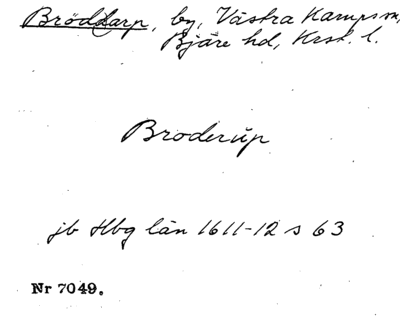 Bröddarp, by, Västra Karups sn,
Bjäre hd, Krst. l.
Broderup
jb Hbg län 1611-12 s 63
Nr 7049.